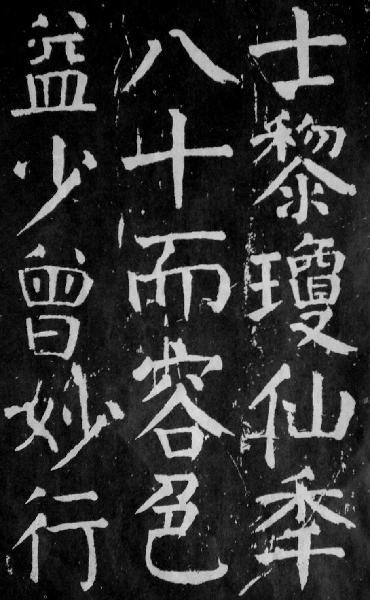 士黎瓊仙秊
八十而容色
益少曾妙行